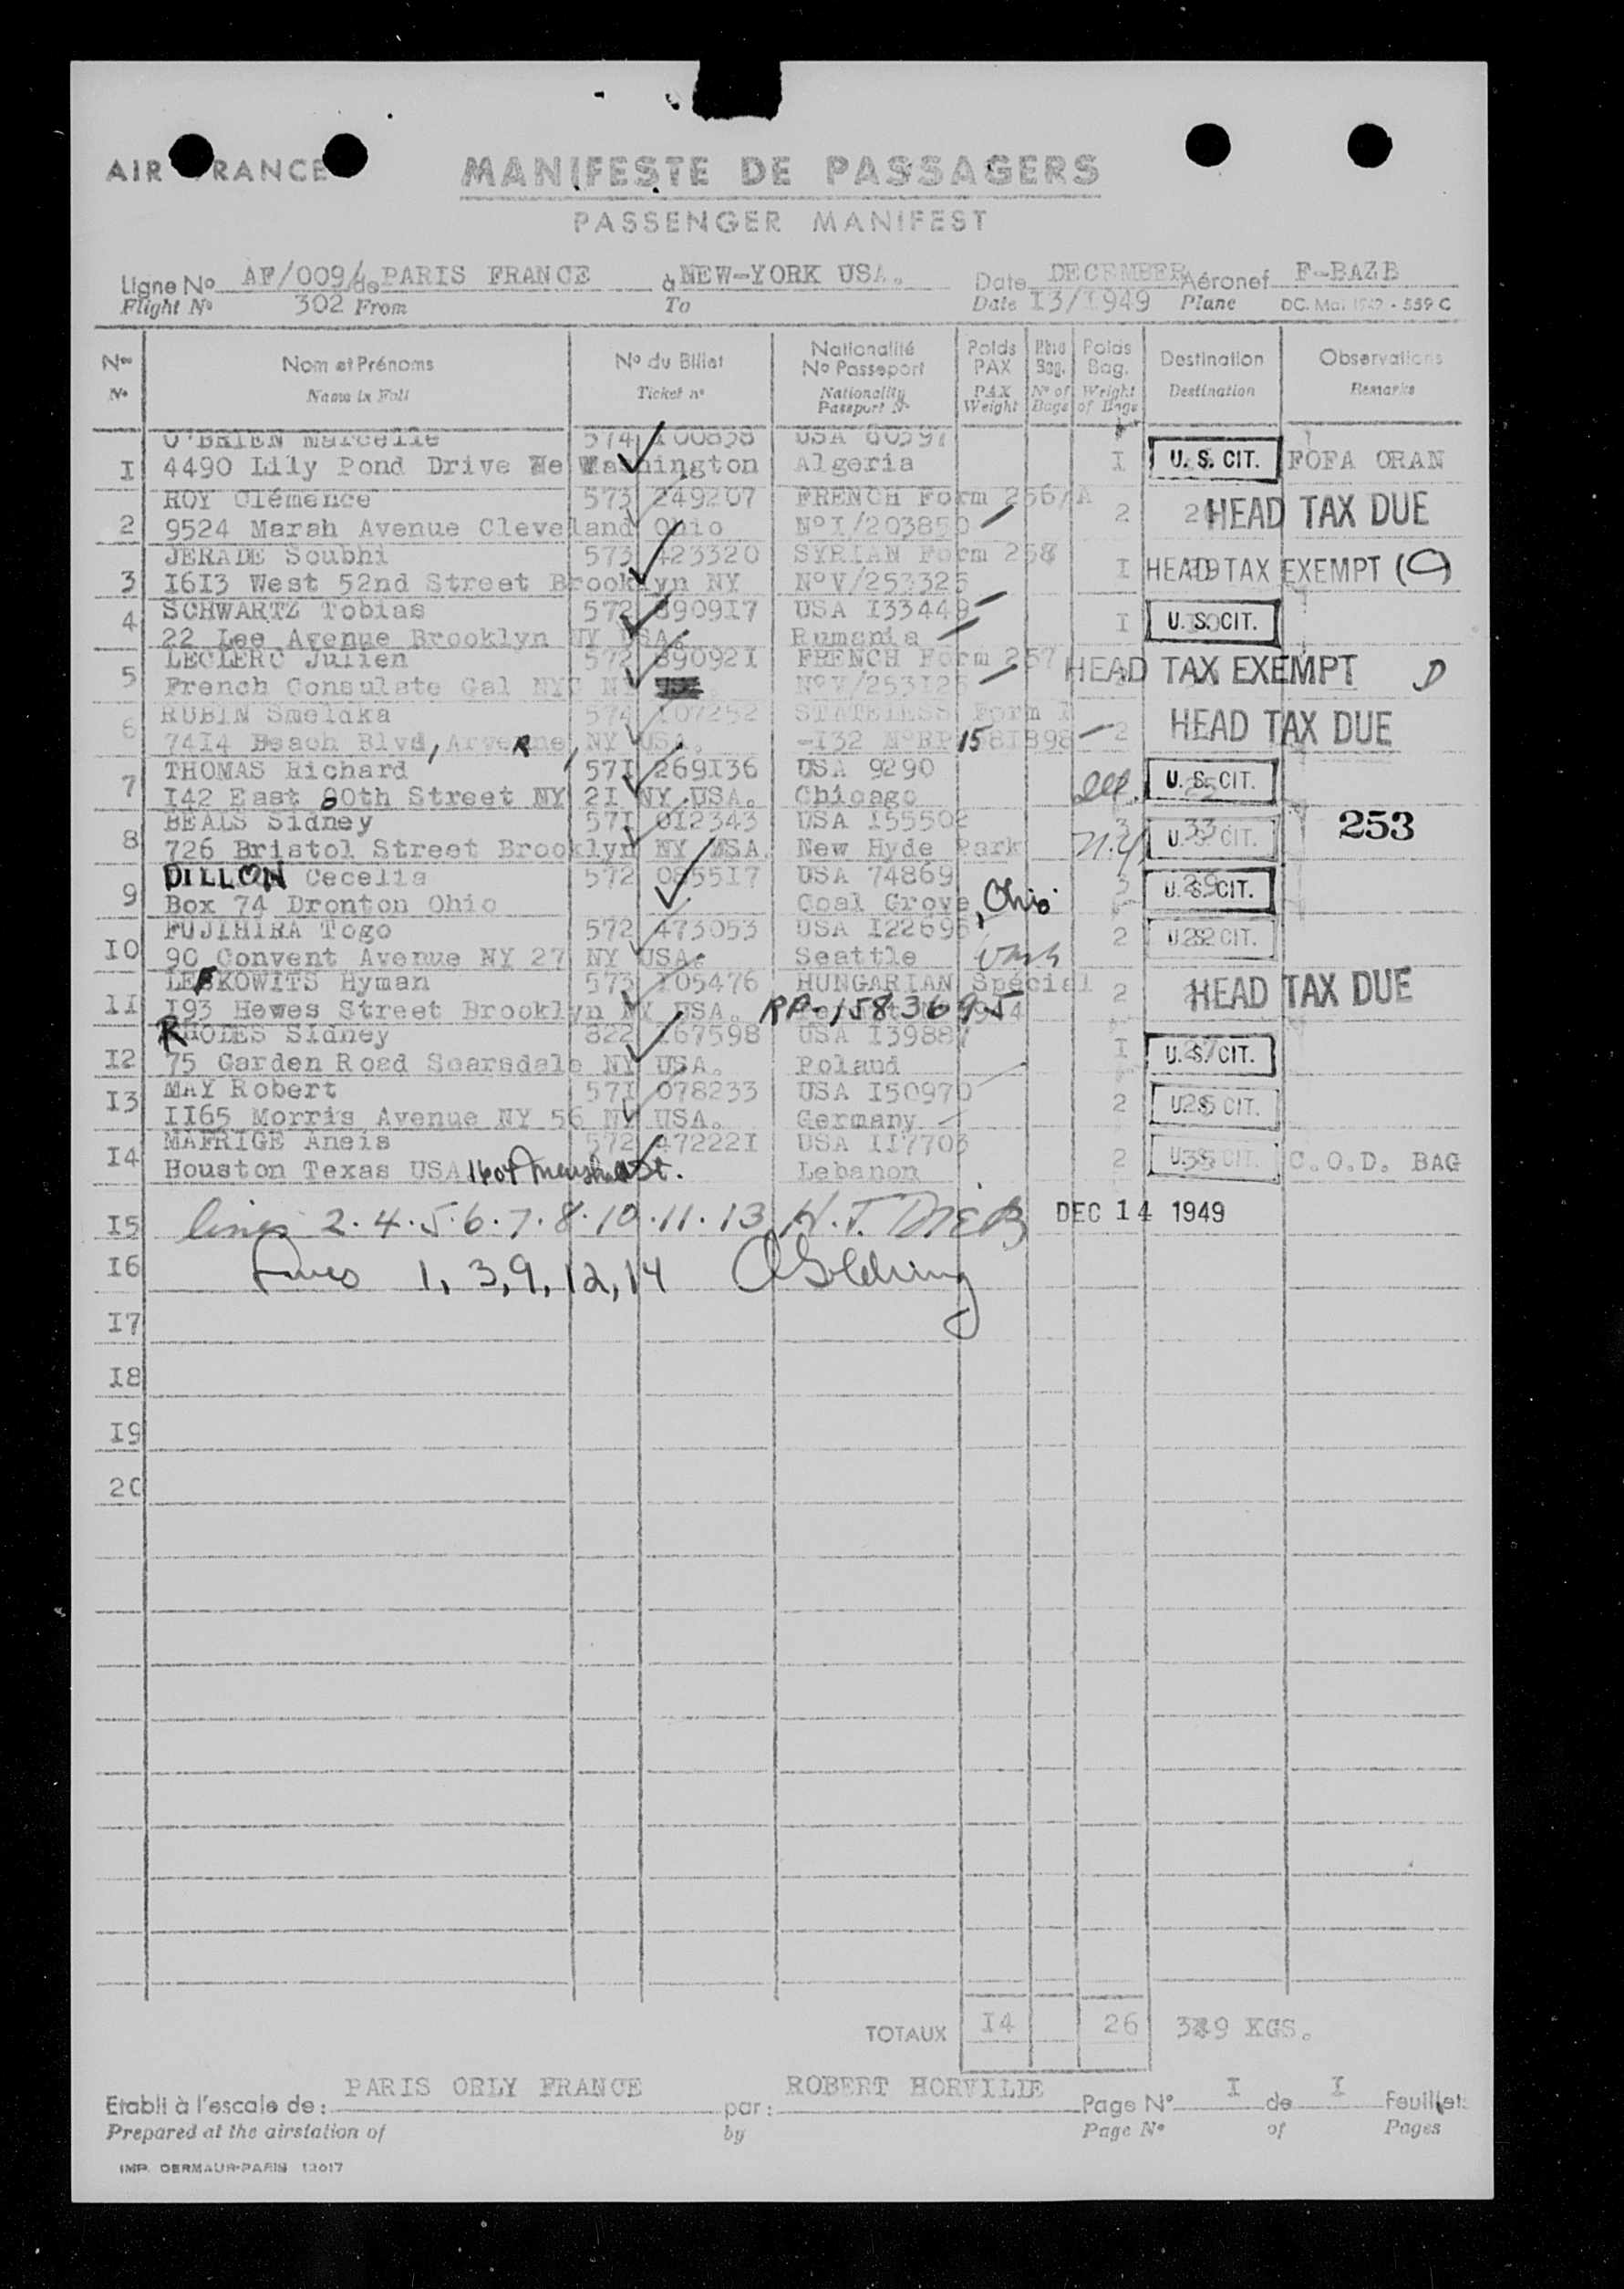 AIR FRANCE
MANIFESTE DE PASSAGERS
PASSENGER MANIFEST
Ligne No AF/009/ de PARIS FRANCE à NEW-YORK USA. Date DECEMBER Aéronef F-BAZB
Flight No 302 From To Date I3/I949 Plane DC. Mai 1949 - 559 C
Nos Nom et Prénoms No du Billet Nationalité No Passeport Poids PAX Nbre Bag. Poids Bag. Destination Observations
No Name in Full Ticket no Nationality Passport No PAX Weight No of Bags Weight of Bags Destination Remarks
O'BRIEN Marcelle 574 I00838 USA 60397
I 4490 Lily Pond Drive Washington Algeria I U. S. CIT. FOFA ORAN
ROY Clémence 573 249207 FRENCH Form 256/A
2 9524 Marah Avenue Cleveland Ohio No I/203850 2 HEAD TAX DUE
JERADE Soubhi 573 423320 SYRIAN Form 258
3 I6I3 West 52nd Street Brooklyn NY No V/253325 I HEAD TAX EXEMPT (C)
SCHWARTZ Tobias 572 890917 USA I33449
4 22 Lee Avenue Brooklyn NY USA. Rumania I U. S. CIT.
LECLERC Julien 572 890921 FRENCH Form 257
5 French Consulate Gal NYC NY No V/253I26 HEAD TAX EXEMPT D
RUBIN Smelaka 574 I07252 STATELESS Form I
6 74I4 Beach Blvd, Arverne, NY USA. -I32 No RP 1581898 2 HEAD TAX DUE
THOMAS Richard 57I 269I36 USA 9290
7 I42 East 80th Street NY 2I NY USA. Chicago Ill. U. S. CIT.
BEALS Sidney 57I 0I2343 USA I55502 3 33 253
8 726 Bristol Street Brooklyn NY USA. New Hyde Park N.Y. U. S. CIT.
DILLON Cecelia 572 0855I7 USA 74869 3
9 Box 74 Dronton Ohio Coal Grove, Ohio U. S. CIT.
FUJIHIRA Togo 572 473053 USA I22696
I0 90 Convent Avenue NY 27 NY USA. Seattle Wash 2 U. S. CIT.
LEFKOWITS Hyman 573 I05476 HUNGARIAN Spécial
II I93 Hewes Street Brooklyn NY USA. RP-1583695 2 HEAD TAX DUE
RHODES Sidney 822 I67598 USA I39887
I2 75 Garden Road Scarsdale NY USA. Poland I U. S. CIT.
MAY Robert 57I 078233 USA I50970
I3 II65 Morris Avenue NY 56 NY USA. Germany 2 U. S. CIT.
MAFRIGE Aneis 572 47222I USA II7703
I4 Houston Texas USA 1604 Marshall St. Lebanon 2 U. S. CIT. C.O.D. BAG
I5 lines 2. 4. 5. 6. 7. 8. 10. 11. 13 H. J. DEC 14 1949
I6 Lines 1, 3, 9, 12, 14 Golding
I7
I8
I9
20
TOTAUX I4 26 349 KGS.
Etabli à l'escale de: PARIS ORLY FRANCE par: ROBERT HORVILLE Page No I de I Feuillets
Prepared at the airstation of by Page No of Pages
IMP. DERMAUR-PARIS 12017